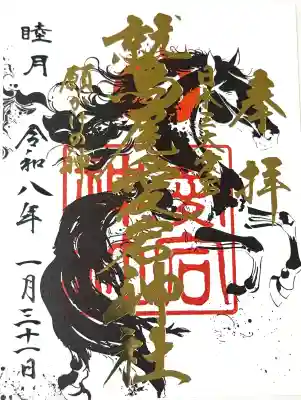 奉拝
日本三大愛宕
鷲尾愛宕神社
睦月 令和八年 一月三十一日